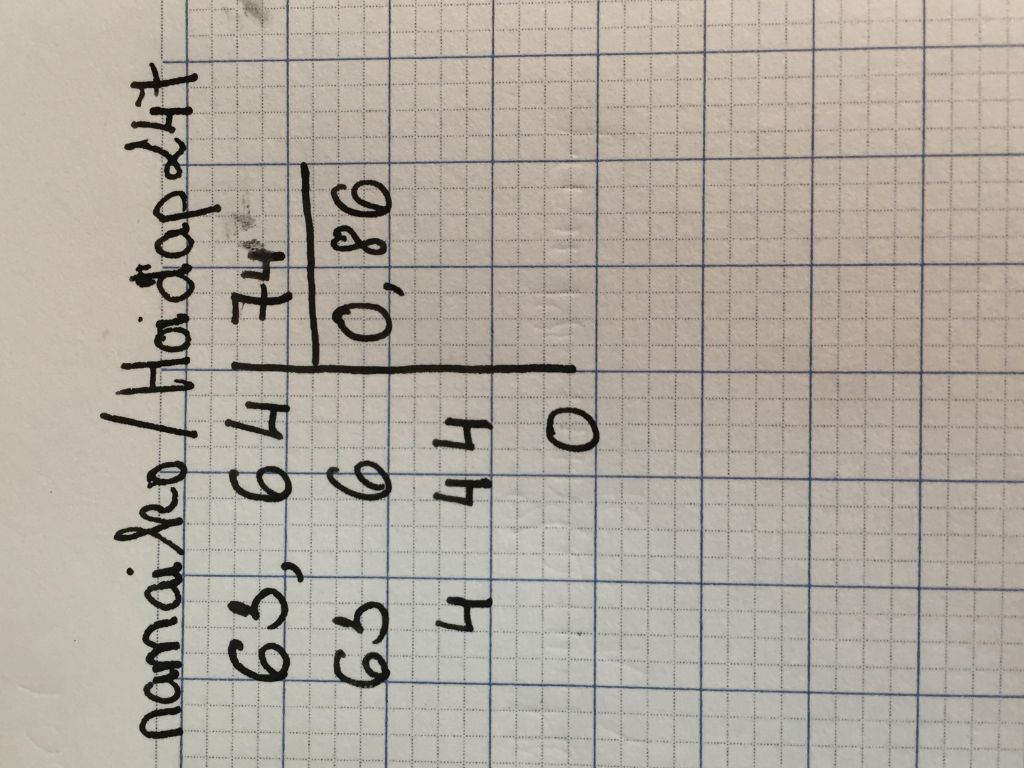 namaiko/Hoidap247
63,64 74
63 6 0,86
4 44
0